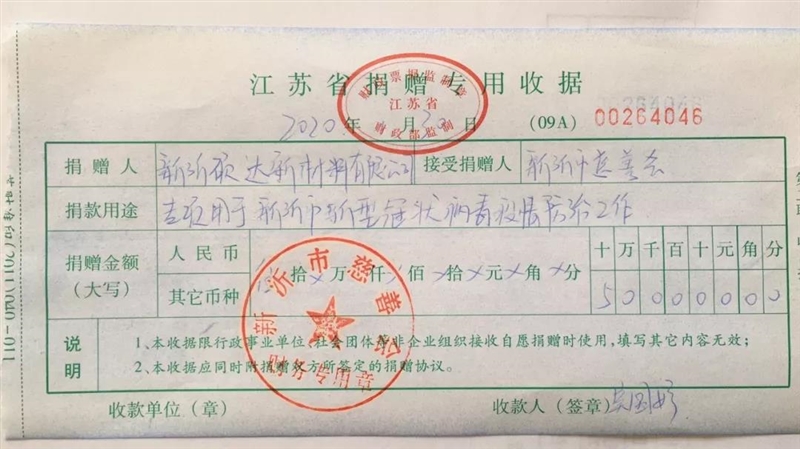 江苏省捐赠专用收据
财政票据监制章
江苏省
财政部监制
2020年 月30日 (09A) 00264046
捐赠人 新沂硕达新材料有限公司 接受捐赠人 新沂市慈善会
捐款用途 专项用于新沂市新型冠状病毒疫情防治工作
捐赠金额 人民币 拾 万 仟 佰 拾 元 角 分 十万千百十元角分
(大写) 其它币种 50000000
新沂市慈善会
财务专用章
说明 1、本收据限行政事业单位、社会团体等非企业组织接收自愿捐赠时使用，填写其它内容无效；
2、本收据应同时附捐赠双方所签定的捐赠协议。
收款单位（章） 收款人（签章）